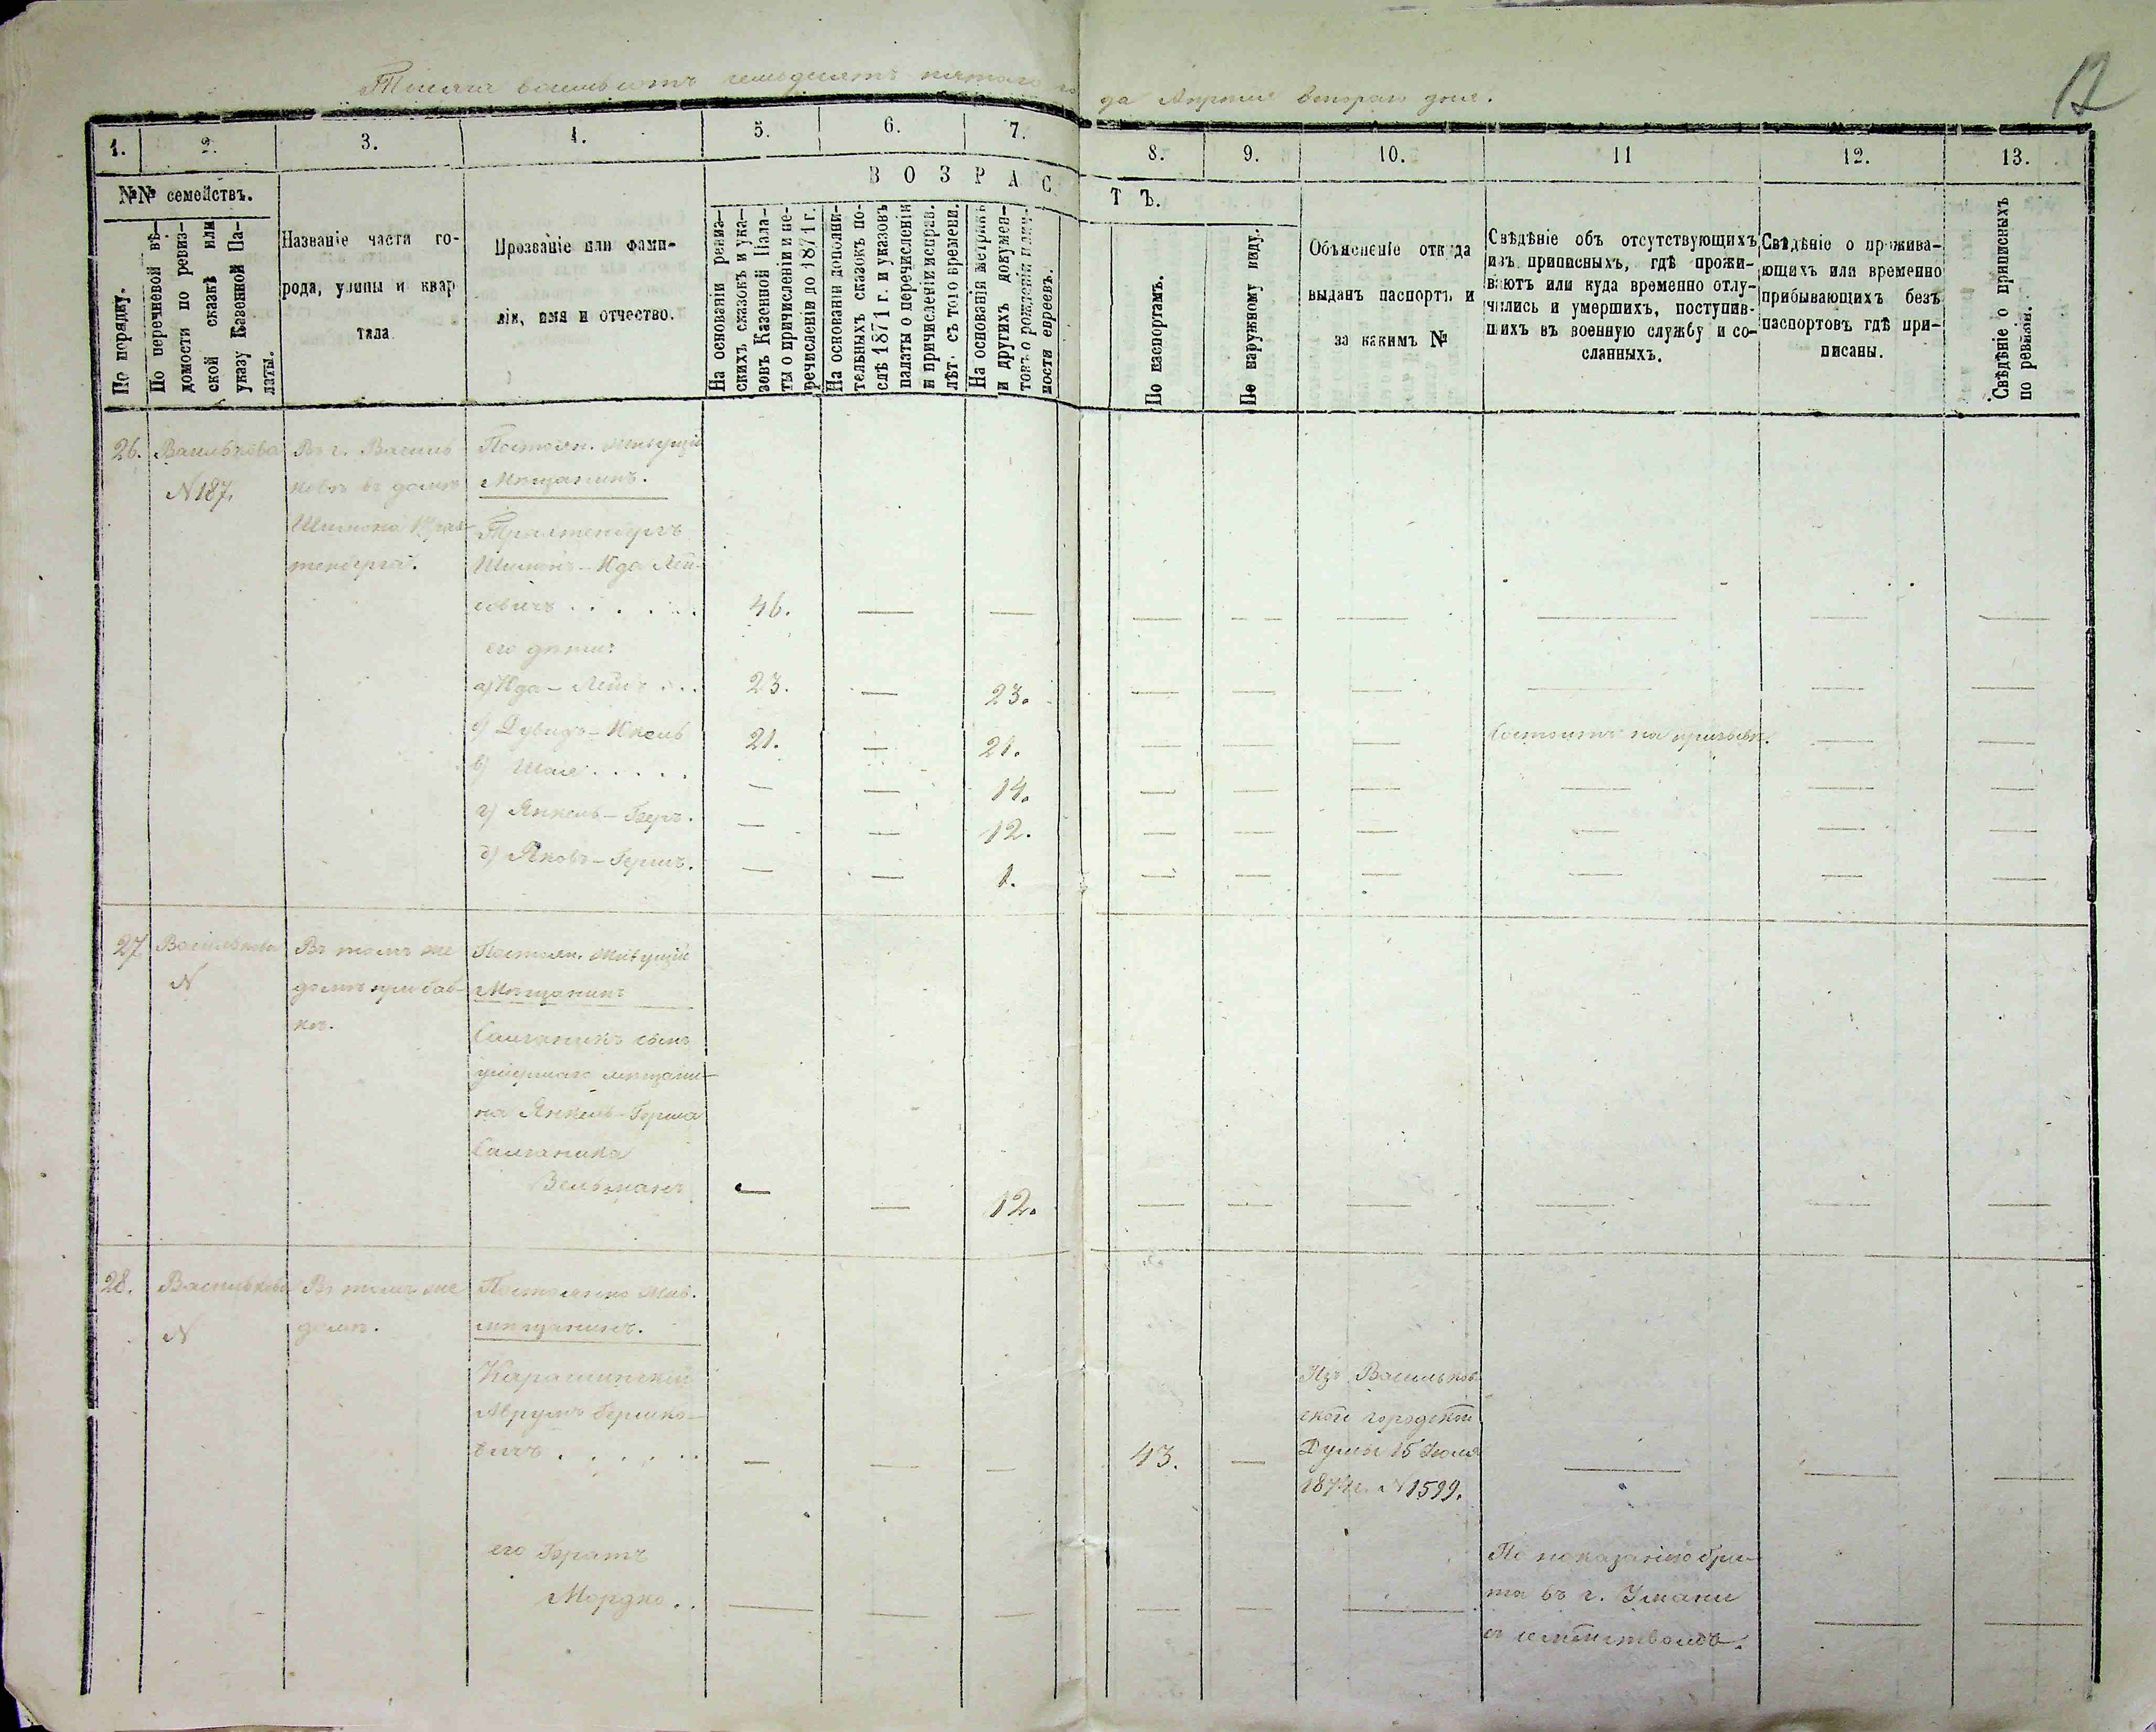 Тысяча восемьсотъ семьдесятъ пятаго года Апрѣля второго дня.
12
1.
2.
3.
4.
5.
6.
7.
8.
9.
10.
11
12.
13.
№№ семействъ.
В О З Р А С Т Ъ.
По порядку.
По перечневой вѣ-
домости по ревиз-
ской сказкѣ или
указу Казенной Па-
латы.
Названіе части го-
рода, улицы и квар
тала
Прозваніе или фами-
лія, имя и отчество.
На основаніи ревиз-
скихъ сказокъ и ука-
зовъ Казенной Пала-
ты о причисленіи и пе-
речисленіи до 1871 г.
На основаніи дополни-
тельныхъ сказокъ по-
слѣ 1871 г. и указовъ
палаты о перечисленіи
и причисленіи исправ.
лѣт. съ того времени.
На основаніи метрикъ
и другихъ докумен-
товъ о рожденіи и лич-
ности евреевъ.
По паспортамъ.
По наружному виду.
Объясненіе откуда
выданъ паспортъ и
за какимъ №
Свѣдѣніе объ отсутствующихъ
изъ приписныхъ, гдѣ прожи-
ваютъ или куда временно отлу-
чились и умершихъ, поступив-
шихъ въ военную службу и со-
сланныхъ.
Свѣдѣніе о прожива-
ющихъ или временно
прибывающихъ безъ
паспортовъ гдѣ при-
писаны.
Свѣдѣніе о приписныхъ
по ревизіи.
26.
Василькова
N 187.
Въ г. Василь
ковѣ въ домѣ
Шимона
тенберга.
Постоян. живущій
Мѣщанинъ.
Тралтенбергъ
Шимонъ-Юда Лей-
бовичъ . . . . . .
46.
его дѣти:
а) Юда-Лейбъ . . .
23.
23.
б) Дувидъ-Юкель
21.
21.
Состоитъ на призывѣ.
в) Шае . . . . .
14.
г) Янкель-Беръ.
12.
д) Яковъ-Гершъ.
1.
27
Василькова
N
Въ томъ же
домѣ при баб-
кѣ.
Постоян. живущій
Мѣщанинъ
Салганикъ сынъ
умершаго мѣщани-
на Янкель-Герша
Салганика
Вельманъ
12.
28.
Василькова
N
Въ томъ же
домѣ.
Постоянно жив.
мѣщанинъ.
Карашинскій
Аврумъ Гершко-
вичъ . . . . . .
43.
Изъ Васильков-
ской городской
Думы 15 Іюля
1874 г. N 1599.
его Братъ
Мордко . .
По показанію бра-
та въ г. Умани
съ семействомъ.